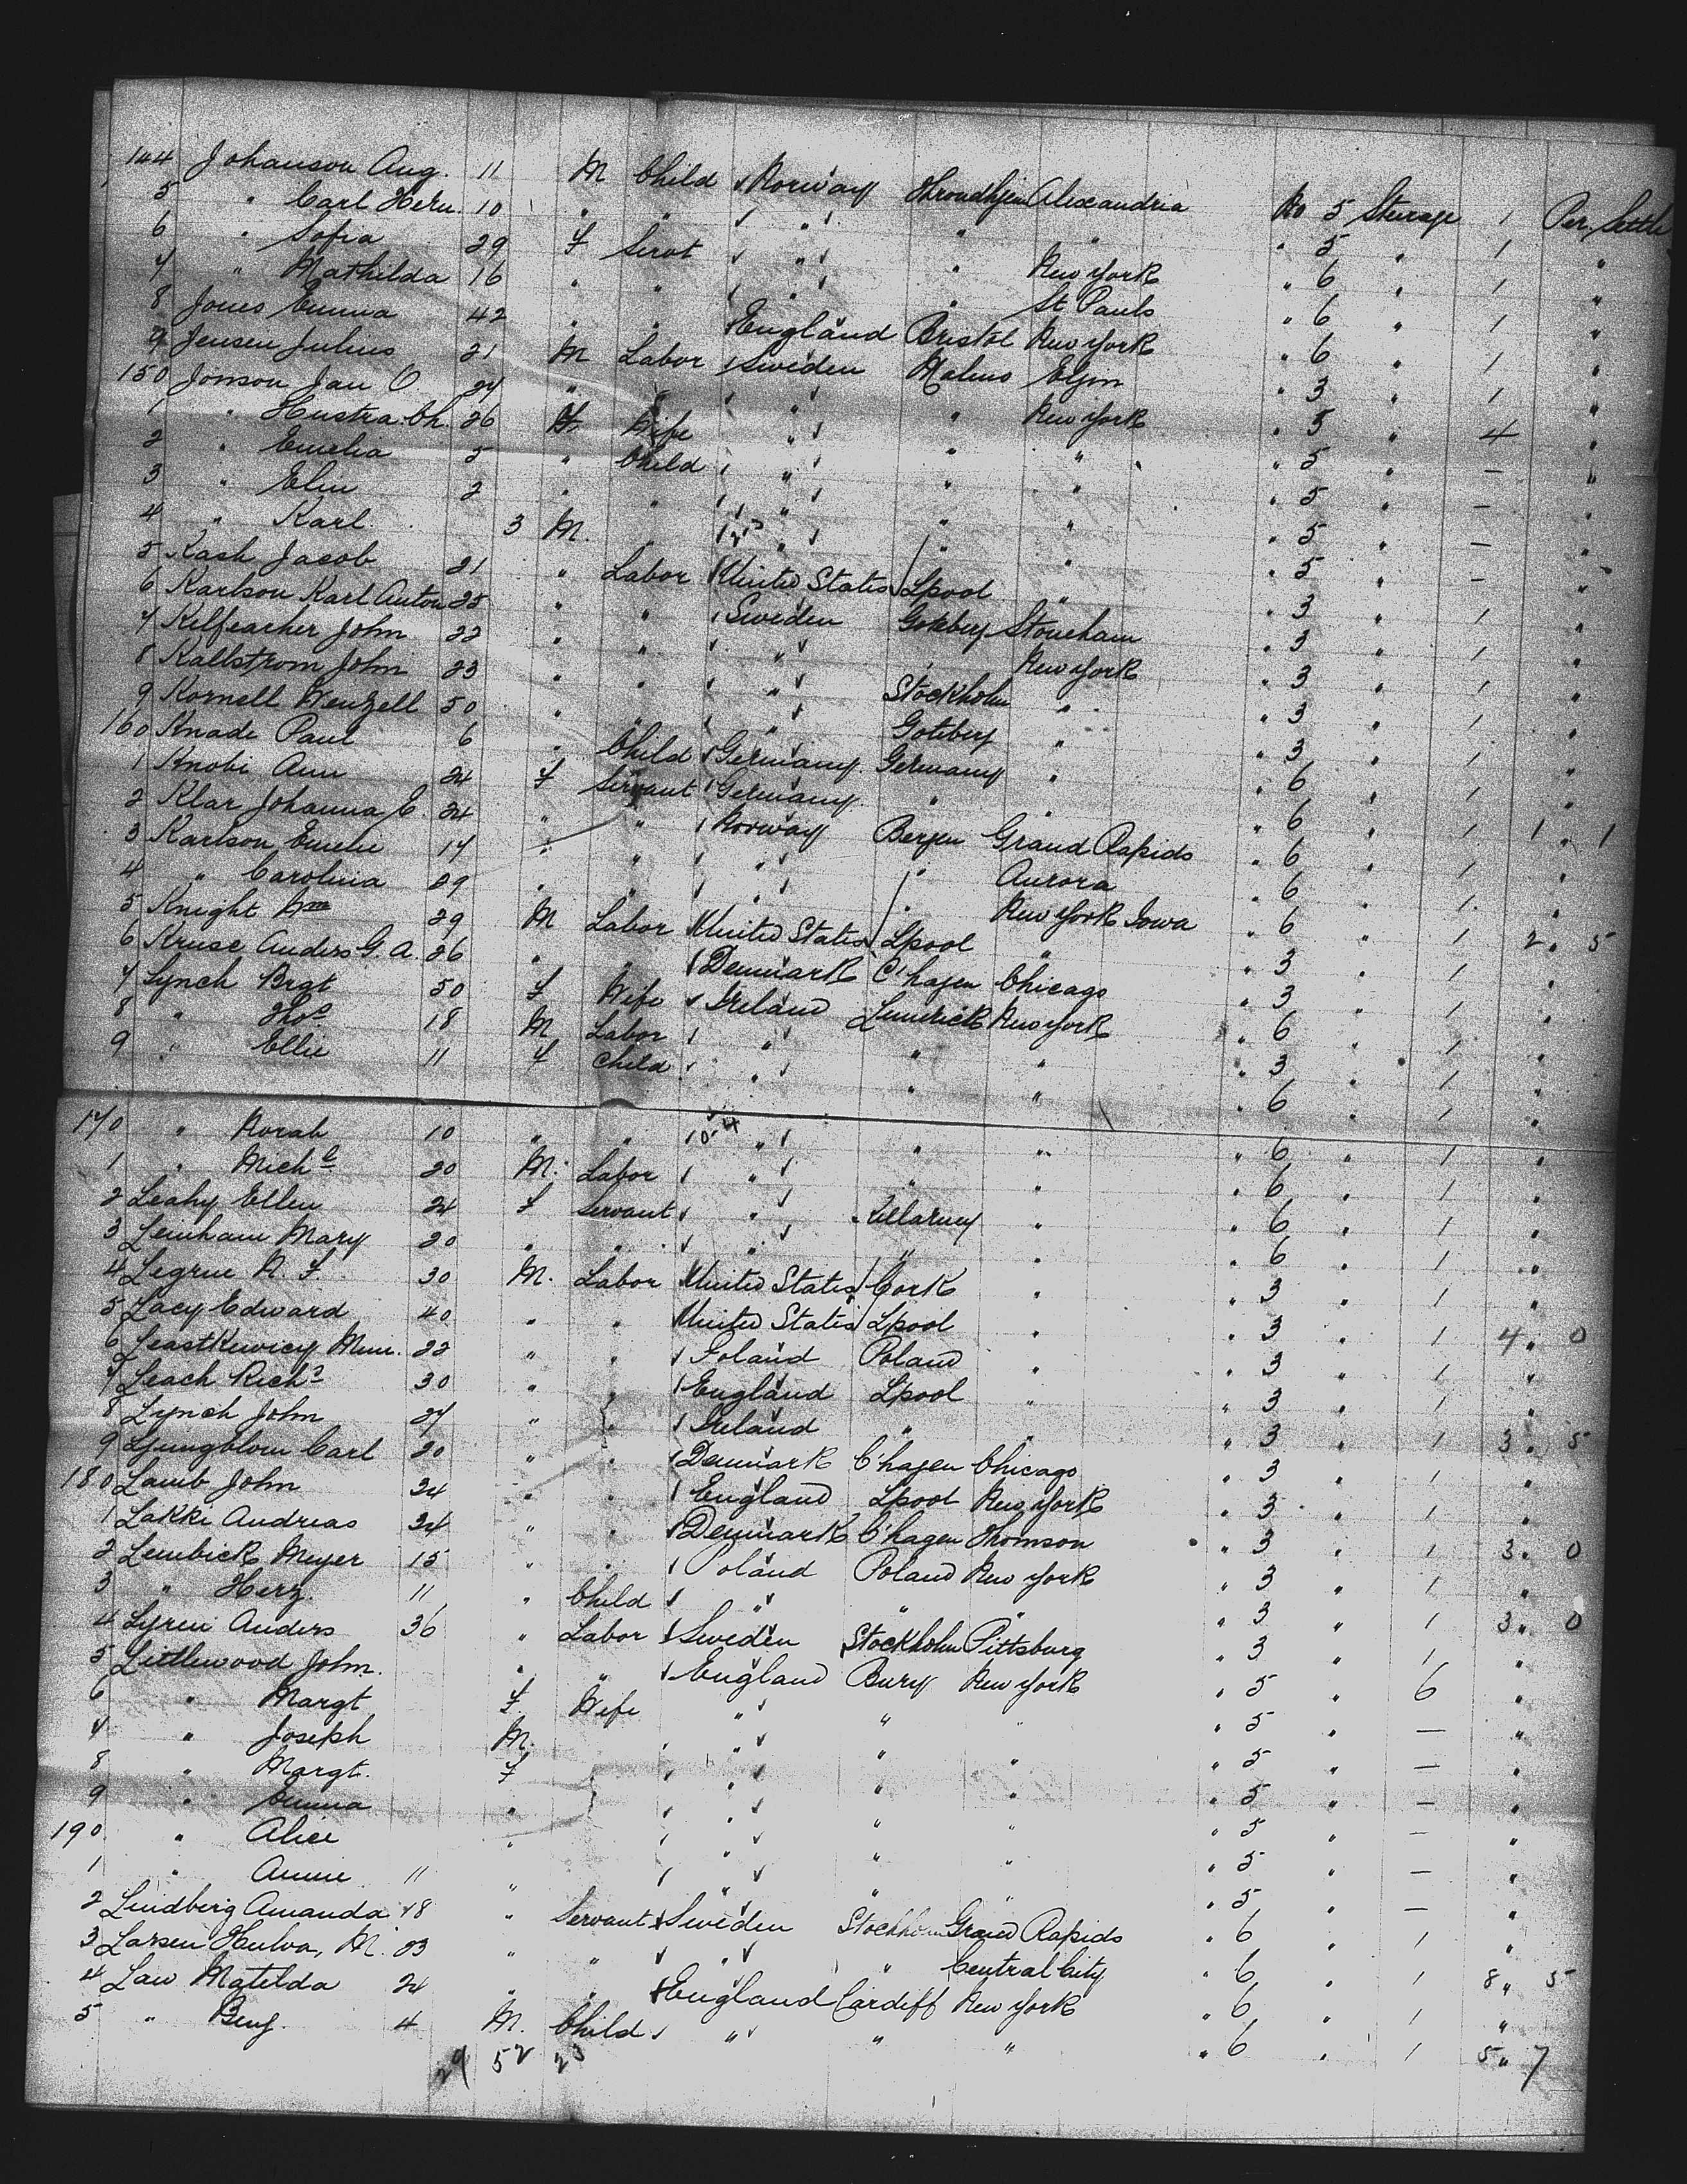 144 Johanson Aug. 11 M Child Norway Throndhjem Alexandria No 5 Steerage 1 Per. Settle
5 " Carl Heru. 10 " " " " " " 5 " 1 "
6 " Sofia 29 F Servt " " New York " 6 " 1 "
7 " Mathilda 16 " " " " St Pauls " 6 " 1 "
8 Jones Emma 42 " " England Bristol New York " 6 " 1 "
9 Jensen Julius 21 M Labor Sweden Malmo Elgin " 3 " 1 "
150 Jonson Jan O 27 " " " " New York " 5 " 4 "
1 " Hustra Ch. 26 F Wife " " " " 5 " — "
2 " Emelia 5 " Child " " " " 5 " — "
3 " Elin 2 " " " " " " 5 " — "
4 " Karl 3 M. " " " " " 5 " — "
5 Kash Jacob 21 " Labor United States Lpool " " 3 " 1 "
6 Karlson Karl Anton 25 " " Sweden Goteberg Stoneham " 3 " 1 "
7 Kelfearher John 22 " " " " New York " 3 " 1 "
8 Kallstrom John 23 " " " Stockholm " " 3 " 1 "
9 Kornell Wentzell 50 " " " Goteberg " " 3 " 1 "
160 Knade Paul 6 " Child Germany Germany " " 6 " 1 "
1 Knobe Ann 24 F Servant Germany " " " 6 " 1 1 " 1
2 Klar Johanna C. 24 " " Norway Bergen Grand Rapids " 6 " 1 "
3 Karlson Emelie 17 " " " " Aurora " 6 " 1 "
4 " Carolina 29 " " " " New York Iowa " 6 " 1 2 " 5
5 Knight Wm 29 M Labor United States Lpool " " 3 " 1 "
6 Kruse Anders G. A. 26 " " Denmark C'hagen Chicago " 3 " 1 "
7 Lynch Brgt 50 F Wife Ireland Limerick New York " 6 " 1 "
8 " Thos 18 M Labor " " " " 3 " 1 "
9 " Ellie 11 F Child " " " " 6 " 1 "
170 " Norah 10 " " " " " " 6 " 1 "
1 " Michl 20 M. Labor " " " " 6 " 1 "
2 Leahy Ellen 24 F Servant " Killarney " " 6 " 1 "
3 Lenihan Mary 20 " " " " " " 6 " 1 "
4 Legrue N. F. 30 M. Labor United States Cork " " 3 " 1 "
5 Lacy Edward 40 " " United States Lpool " " 3 " 1 4 " 0
6 Leastkewicy Mim. 22 " " Poland Poland " " 3 " 1 "
7 Leach Richd 30 " " England Lpool " " 3 " 1 "
8 Lynch John 27 " " Ireland " " " 3 " 1 3 " 5
9 Ljungblom Carl 20 " " Denmark C'hagen Chicago " 3 " 1 "
180 Lamb John 34 " " England Lpool New York " 3 " 1 "
1 Lakke Andreas 34 " " Denmark C'hagen Thomson " 3 " 1 3 " 0
2 Lembick Meyer 15 " " Poland Poland New York " 3 " 1 "
3 " Herz. 11 " Child " " " " 3 " 1 3 " 0
4 Lyren Anders 36 " Labor Sweden Stockholm Pittsburg " 3 " 1 "
5 Littlewood John. " " England Bury New York " 5 " 6 "
6 " Margt F. Wife " " " " 5 " — "
7 " Joseph M. " " " " 5 " — "
8 " Margt. F " " " " 5 " — "
9 " Emma " " " " " 5 " — "
190 " Alice " " " " " 5 " — "
1 " Annie 11 " " " " " 5 " — "
2 Lindberg Amanda 18 " Servant Sweden Stockholm Grand Rapids " 6 " 1 "
3 Larsen Hulva, M. 23 " " " " Central City " 6 " 1 8 " 5
4 Law Matilda 24 " " England Cardiff New York " 6 " 1 "
5 " Benj. 4 M. Child " " " " 6 " 1 5 " 7
29 52 23